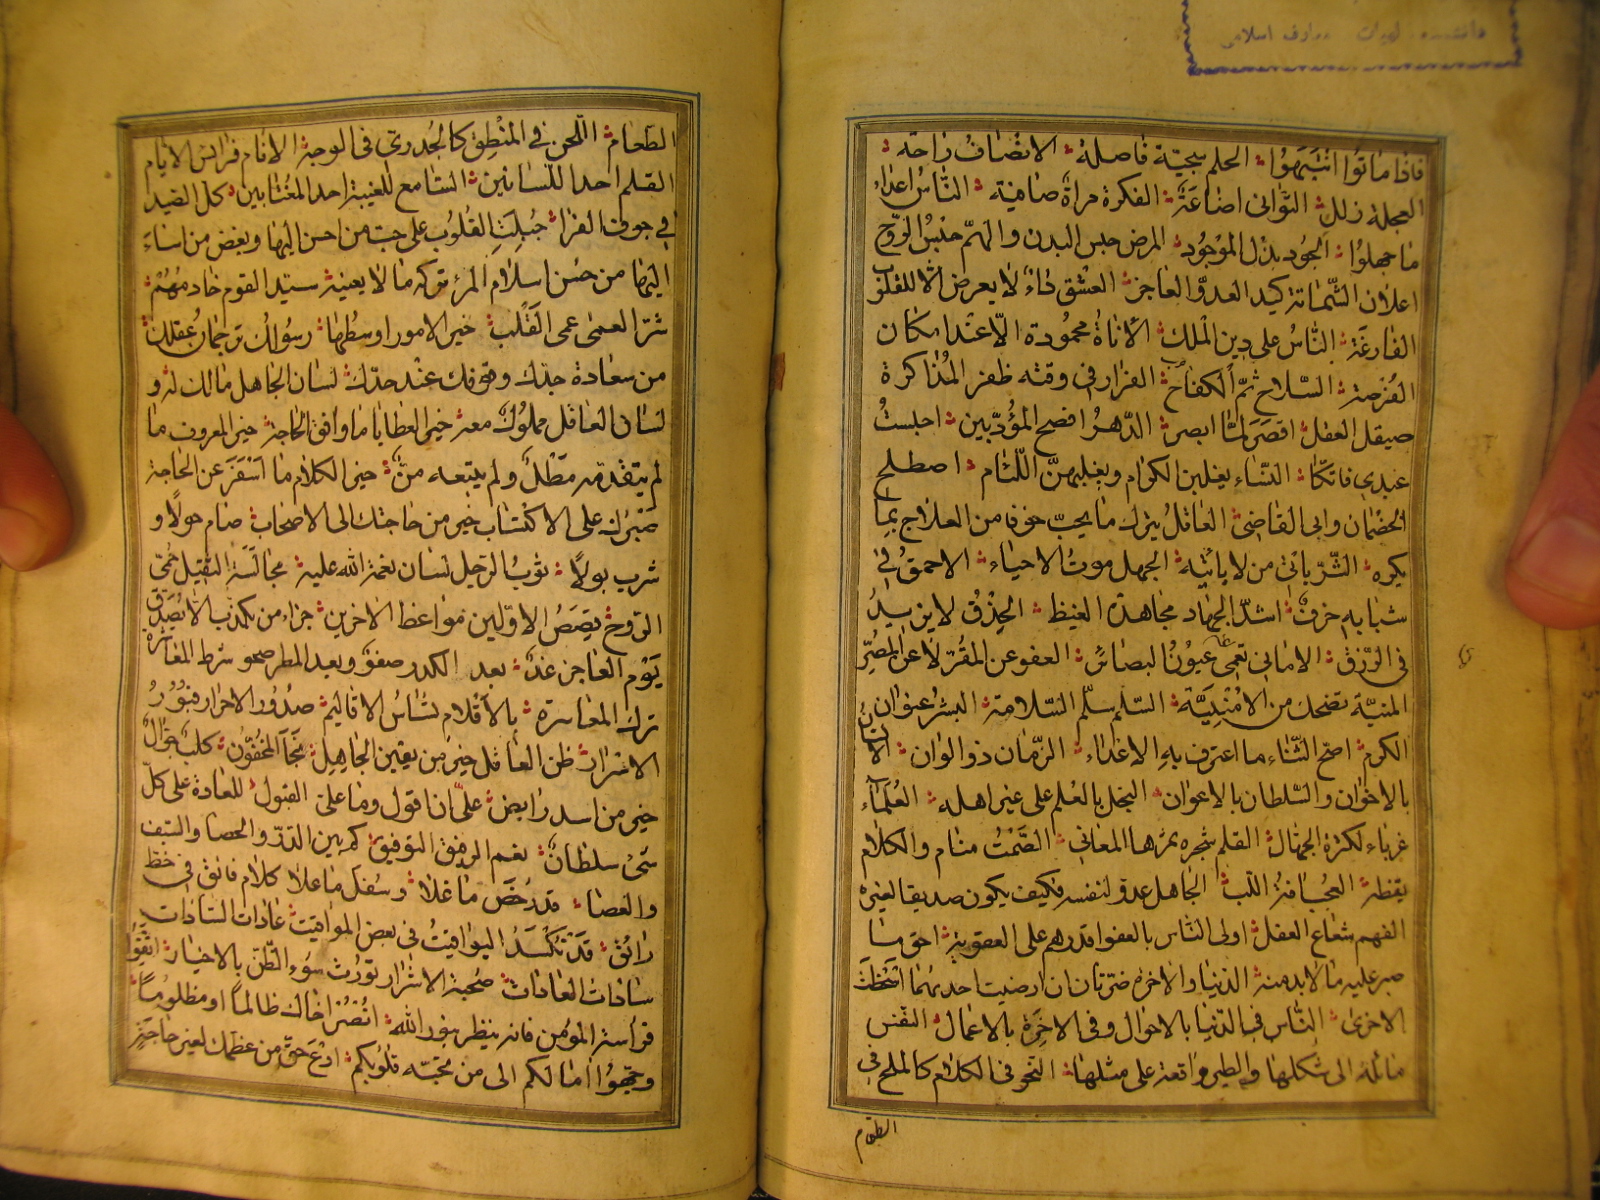 دانشکده الهیات و معارف اسلامی
فاذا ماتوا انتبهوا الحلم سجیّة فاضلة الانصاف راحة
العجلة زلل التوانی اضاعَة الفکرة مرآة صافیة النّاسُ اعداء
ما جهلوا الجُود بذل المَوجُود المرض حبس البدن والهمّ حبسُ الرّوح
اعلان الشّماتة کید العدوّ العاجز العِشق داءٌ لا یعرض الّا للقلوب
الفارغة النّاسُ علی دین الملک الأناةُ محمُودة الّا عند امکان
الفُرصة السّلاح ثمّ الکفاح الفرار فی وقته ظفر المُذاکرة
صیقل العقل اقصَرَ لمّا ابصر الدّهرُ افصح المؤدّبین اجلستُ
عبدی فاتّکا النّساء یغلبن الکرام ویغلبهنّ اللّئام اصطلح
الخصمان وابی القاضی العاقلُ یترک ما یحبّ خوفا من العلاج بما
یکره الشّر یأتی من لا یأتیه الجهل موتُ الاحیاء الاحمقُ فی
شبابهِ خرفٌ اشدّ الجهاد مجاهدة الغیظ الحِذقُ لا یزیدُ
فی الرّزق الامانی تعمی عیُونُ البصائر العفو عن المقرّ لا عن المُصِرّ
المنیّة تضحک من الاُمنیَّة السّلم سلّم السّلامة البشرُ عنوان
الکرم اصحّ الثّناء ما اعترف بهِ الاعداء الزّمان ذو الوان الانسانُ
بالاخوان والسّلطان بالاعوان البخل بالعلم علی غیر اهله العُلمآء
غرباء لکثرة الجهّال القلم شجره ثمرها المعانی الصّمْتُ منام والکلام
یقظة العجُب آفة اللّب الجاهل عدوّ لنفسه فکیف یکون صدیقا لغیره
الفهم شعاع العقل اولی النّاس بالعفو اقدرهم علی العقوبة احق ما
صبر علیه ما لا بدّ منه الدّنیا والاخرة ضرّتان ان ارضیت احدیهُما اسْخَطَت
الاخریٰ النّاس فی الدّنیا بالاحوال وفی الآخِرة بالاعمال النّفس
مائلة الی شکلها والطیر واقعة علی مثلها النّحو فی الکلام کالملح فی
الطعام
الطعام اللّحن فی المنْطِق کالجُدری فی الوجه الانام فرائس الایّام
القلم احد اللّسانین السّامع للغیبة احد المغتابین کلّ الصّید
فی جوف الفرا جُبلِتِ القُلُوب علی حبّ من احسن الیها وبغض من اساء
الیها من حسن اسلام المرء ترکه ما لا یعنیه سیّد القوم خادمهُم
شرّ العمیٰ عمی القَلب خیر الامور اوسطُها رسُولک ترجمان عقلک
من سعادة جدّک وقوفک عند حدّک لسان الجاهل مالک له و
لسان العاقل مملُوک معه خیر العطایا ما وافق الحاجة خیر المعروف ما
لم یتقدّمه مَطْلٌ ولم یتبعه منٌّ خیر الکلام ما اسْفَرَ عن الحاجة
صبرک علی الاکتساب خیر من حاجتک الی الاصحاب صام حولًا و
شرب بولًا ثوبُ الرّجل لسان نعمة الله علیه مجالسَة الثقیل حُمّی
الرّوح قِصَصُ الاوّلین مواعظ الاخرین جزاء من یکذب الّا یُصَدّق
یَوم العاجز غدٌ بعد الکدر صفوٌ وبعد المطر صحو شرط المعاشره
ترک المعاسره بالأقلام تُساس الاقالیم صُدُور الاحرار قبُورُ
الاسرار ظنّ العاقل خیر من یقین الجاهل نجَا المُخفّون کلبٌ جوّالٌ
خیر من اسد رابض علیّ ان اقول وما علیّ القبول للعادة علی کلّ
شیٔ سلطانٌ نعم الرفیق التوفیق کم بین الدّرّ والحصا والسّیف
والعصا قد رخُصَ ما غلا وسفل ما علا کلام فائق فی خطّ
رائق قَدْ تَکسُدُ الیواقیتُ فی بعض المواقیت عادات السّادات
سادات العادات صُحبة الاشرار تورث سُوء الظّنّ بالاخیار اتّقُوا
فراسة المؤمن فانه ینظر بنور الله انصُر اخاک ظالمًا او مظلُومًا
وجّهُوا آمالکم الی من تحبّه قلُوبکم ارْعَ حقّ من عظّمک لغیر حاجةٍ